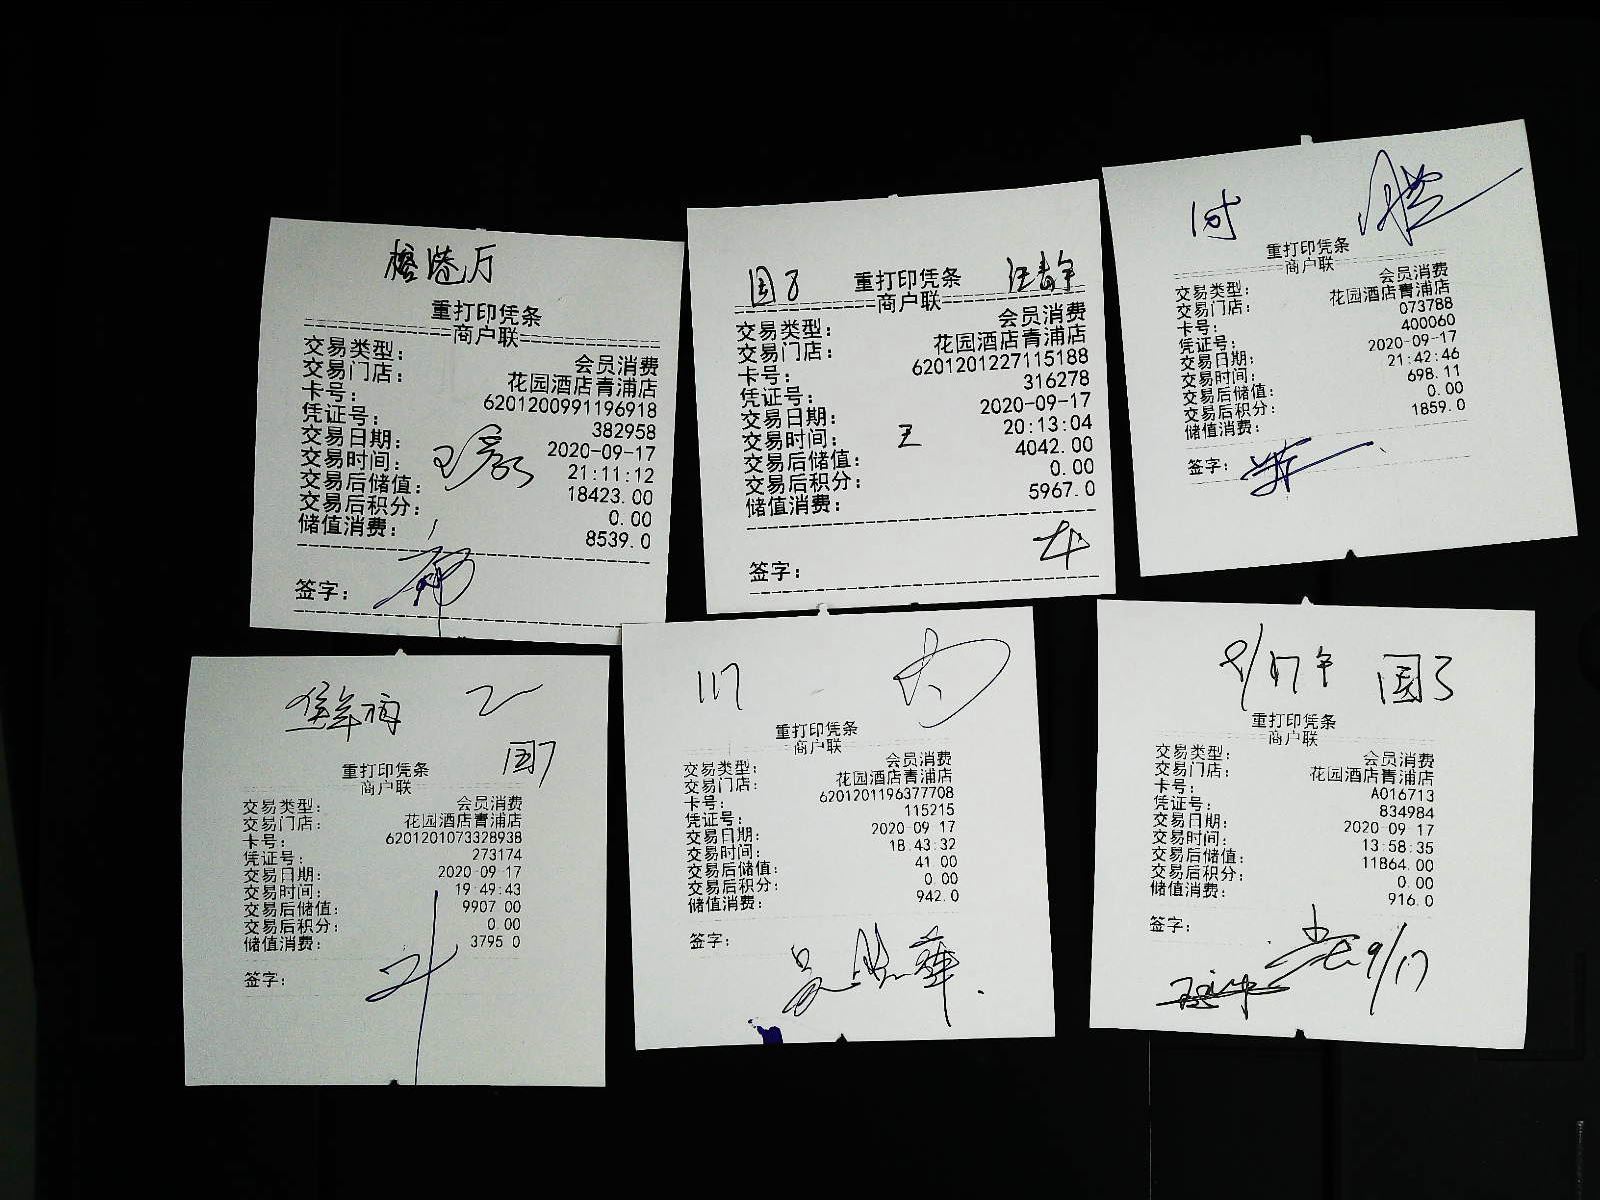 重打印凭条
商户联
交易类型: 会员消费
交易门店: 花园酒店青浦店
卡号: 6201200991196918
凭证号: 382958
交易日期: 2020-09-17
交易时间: 21:11:12
交易后储值: 18423.00
交易后积分: 0.00
储值消费: 8539.0
签字:
国3 重打印凭条 汪青年
商户联
交易类型: 会员消费
交易门店: 花园酒店青浦店
卡号: 6201201227115188
凭证号: 316278
交易日期: 2020-09-17
交易时间: 20:13:04
王
交易后储值: 4042.00
交易后积分: 0.00
储值消费: 5967.0
签字:
重打印凭条
商户联
交易类型: 会员消费
交易门店: 花园酒店青浦店
卡号: 073788
凭证号: 400060
交易日期: 2020-09-17
交易时间: 21:42:46
交易后储值: 698.11
交易后积分: 0.00
储值消费: 1859.0
签字:
国7
重打印凭条
商户联
交易类型: 会员消费
交易门店: 花园酒店青浦店
卡号: 6201201073328938
凭证号: 273174
交易日期: 2020-09-17
交易时间: 19:49:43
交易后储值: 9907.00
交易后积分: 0.00
储值消费: 3795.0
签字:
117
重打印凭条
商户联
交易类型: 会员消费
交易门店: 花园酒店青浦店
卡号: 6201201196377708
凭证号: 115215
交易日期: 2020-09-17
交易时间: 18:43:32
交易后储值: 41.00
交易后积分: 0.00
储值消费: 942.0
签字:
9/17午 国3
重打印凭条
商户联
交易类型: 会员消费
交易门店: 花园酒店青浦店
卡号: A016713
凭证号: 834984
交易日期: 2020-09-17
交易时间: 13:58:35
交易后储值: 11864.00
交易后积分: 0.00
储值消费: 916.0
签字:
9/17